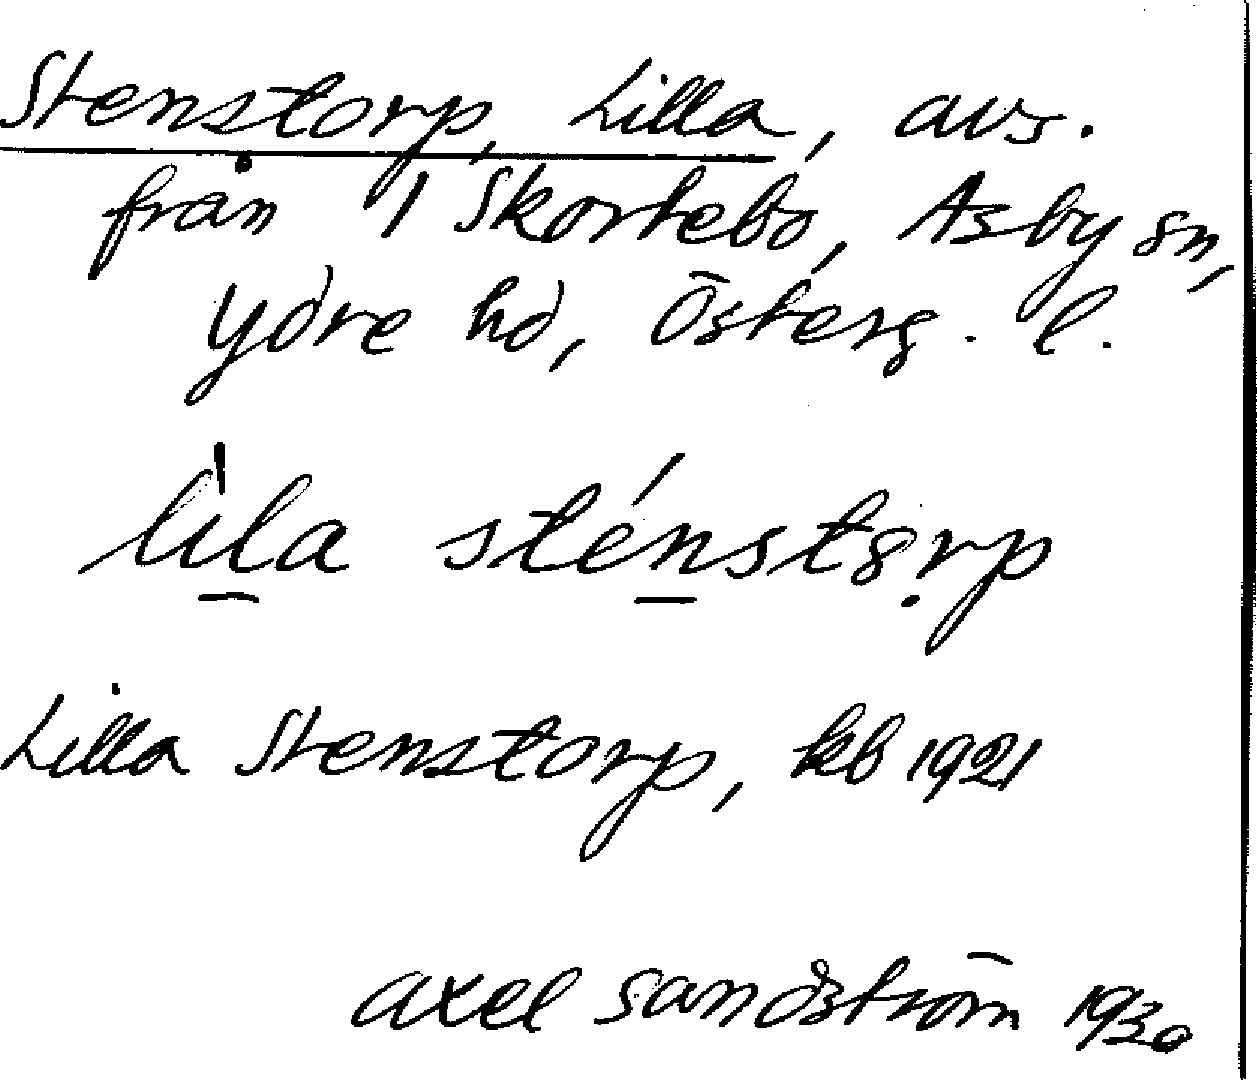 Stenstorp, Lilla, avs.
från 1 Skortebo, Asby sn,
Ydre hd, Österg. l.
lìla sténstọrp
Lilla Stenstorp, kb 1921
Axel Sandström 1930